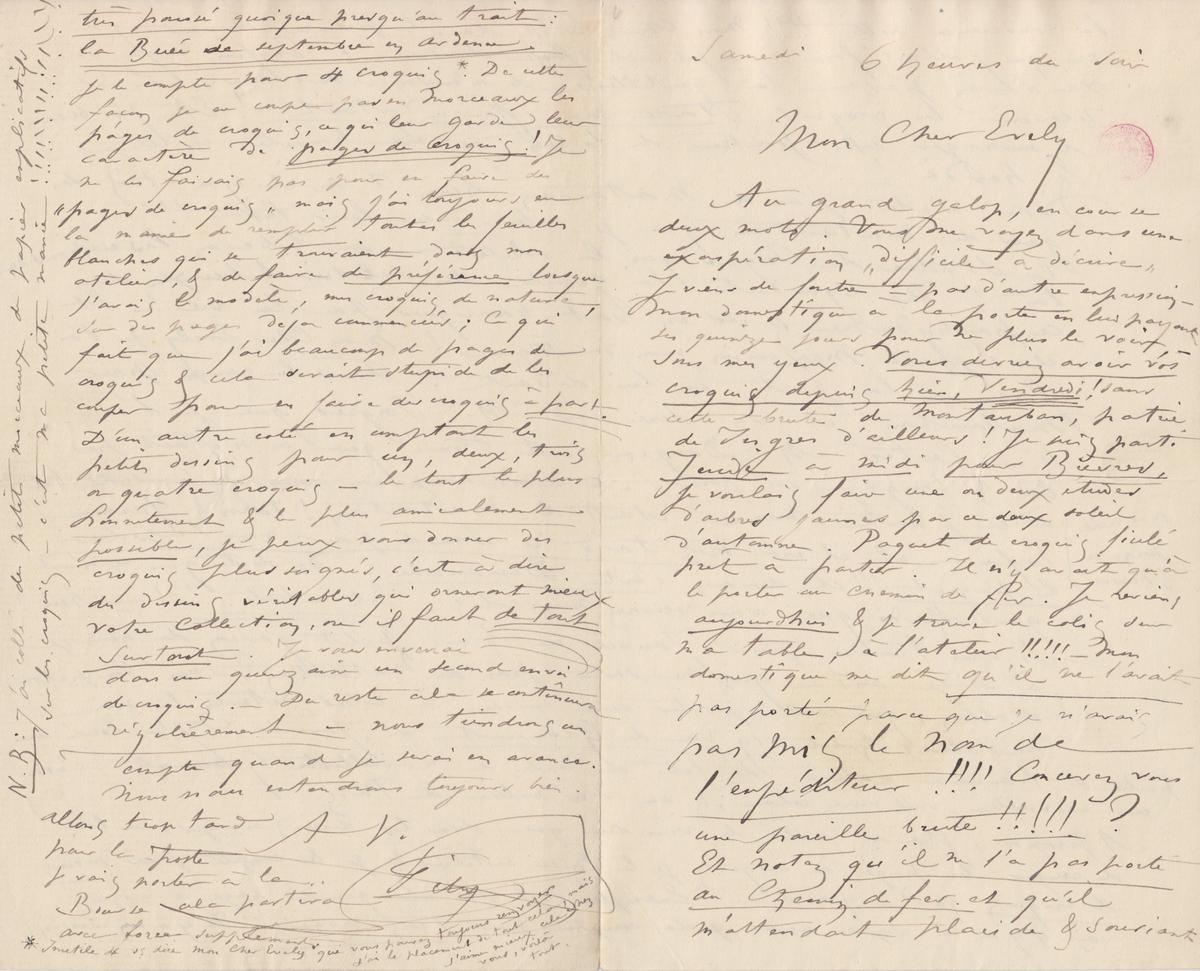 Samedi 6 heures du soir
Mon Cher Evely
Au grand galop, en course
deux mots. Vous me voyez dans une
exaspération „difficile à décrire„
Je viens de foutre — pas d'autre expression —
mon domestique à la porte en lui payant
ses quinze jours pour ne plus le voir
sous mes yeux. Vous devriez avoir vos
croquis depuis hier, Vendredi! sans
cette brute de Montauban, patrie
de Ingres d'ailleurs! Je suis parti
Jeudi à midi pour Bièvres,
je voulais faire une ou deux etudes
d'arbres jaunes par ce doux soleil
d'automne. Paquet de croquis ficelé
pret à partir. Il n'y avait qu'à
le porter au chemin de fer. Je reviens
aujourdhui & je trouve le colis sur
ma table, à l'atelier !!!!! — Mon
domestique me dit qu'il ne l'avait
pas porté parce que je n'avais
pas mis le nom de
l'expéditeur !!!! Concevez vous
une pareille brute !!!!! ?
Et notez qu'il ne l'a pas porté
au Chemin de fer. et qu'il
m'attendait placide & souriant
très poussé quoique presqu'au trait:
la Buée de septembre en Ardenne.
Je le compte pour 4 croquis*. De cette
façon je ne coupe pas en morceaux les
pages de croquis, ce qui leur garde leur
caractère de pages de croquis! Je
ne les faisais pas pour en faire des
„pages de croquis„ mais j'ai toujours eu
la manie de remplir toutes les feuilles
blanches qui se trouvaient dans mon
atelier, & de faire de préférence lorsque
j'avais le modèle, mes croquis de nature,
sur des pages déja commencées; Ce qui
fait que j'ai beaucoup de pages de
croquis & cela serait stupide de les
couper pour en faire des croquis à part.
D'un autre coté en comptant les
petits dessins pour un, deux, trois
ou quatre croquis — le tout le plus
honnêtement & le plus amicalement
possible, je peux vous donner des
croquis plus soignés, c'est à dire
des dessins véritables qui orneront mieux
votre Collection, où il faut de tout
surtout. Je vous enverrai
dans une quinzaine un second envoi
de croquis. — Du reste cela se continuera
régulièrement — nous tiendrons un
compte quand je serai en avance.
Nous nous entendrons toujours bien.
allons trop tard
pour la poste
je vais porter à la
Bourse cela partira
avec force supplements
A V.
Fély
* Inutile de vs dire mon Cher Evely que vous pouvez toujours renvoyer
j'ai le placement de tout cela, mais
j'aime mieux cela chez
vous, voilà
tout.
N.B: J'ai collé de petits morceaux de papier explicatifs
sur les croquis — c'est ma petite manie!